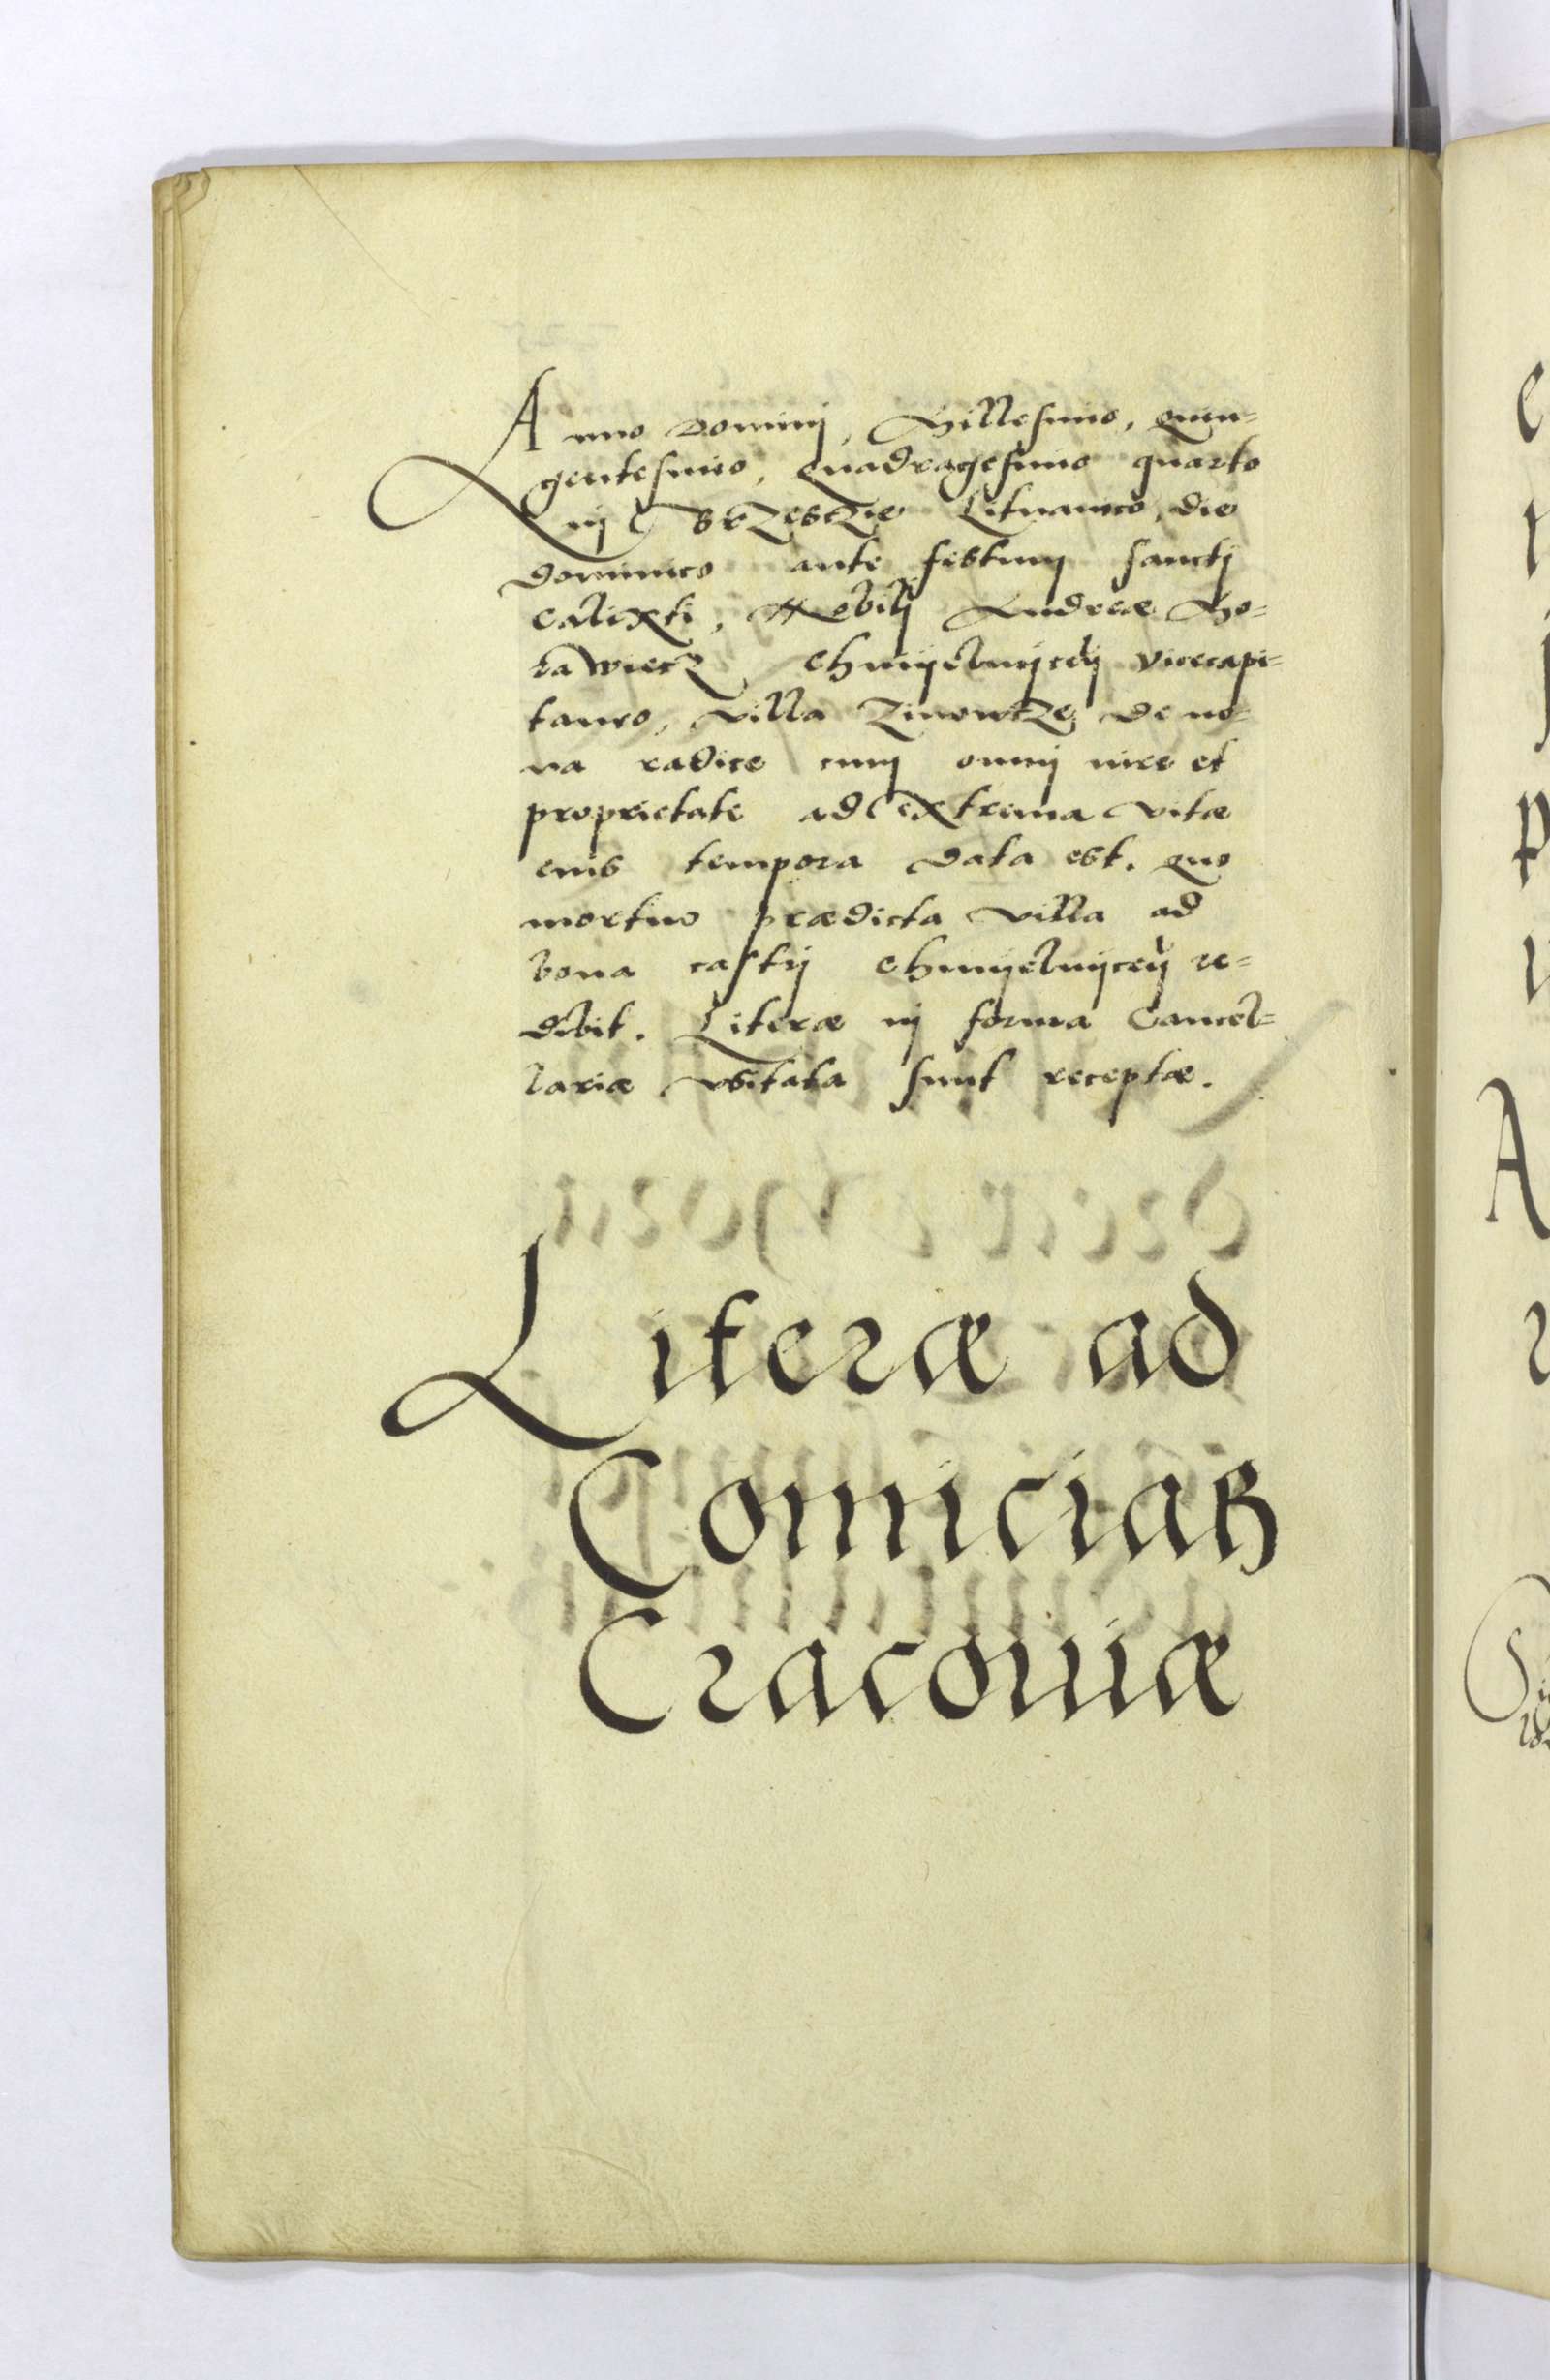 Anno Dominj, Millesimo, quin=
gentesimo, quadragesimo quarto
in Brzesczie Lituanico, die
dominico ante festum sanctj
Calixti, Nobilj Andreæ Mo=
rawiecz, Chmijelnijceñ vicecapi=
taneo, villa Zinowcze de no=
va radice cum omnj iure et
proprietate ad extrema vitæ
eius tempora data est. quo
mortuo prædicta villa ad
bona castrj Chmijelnijceñ re=
dibit. Literæ in forma Cancel=
lariæ vsitata sunt receptæ.
Literæ ad
Comicia
Cracoviæ